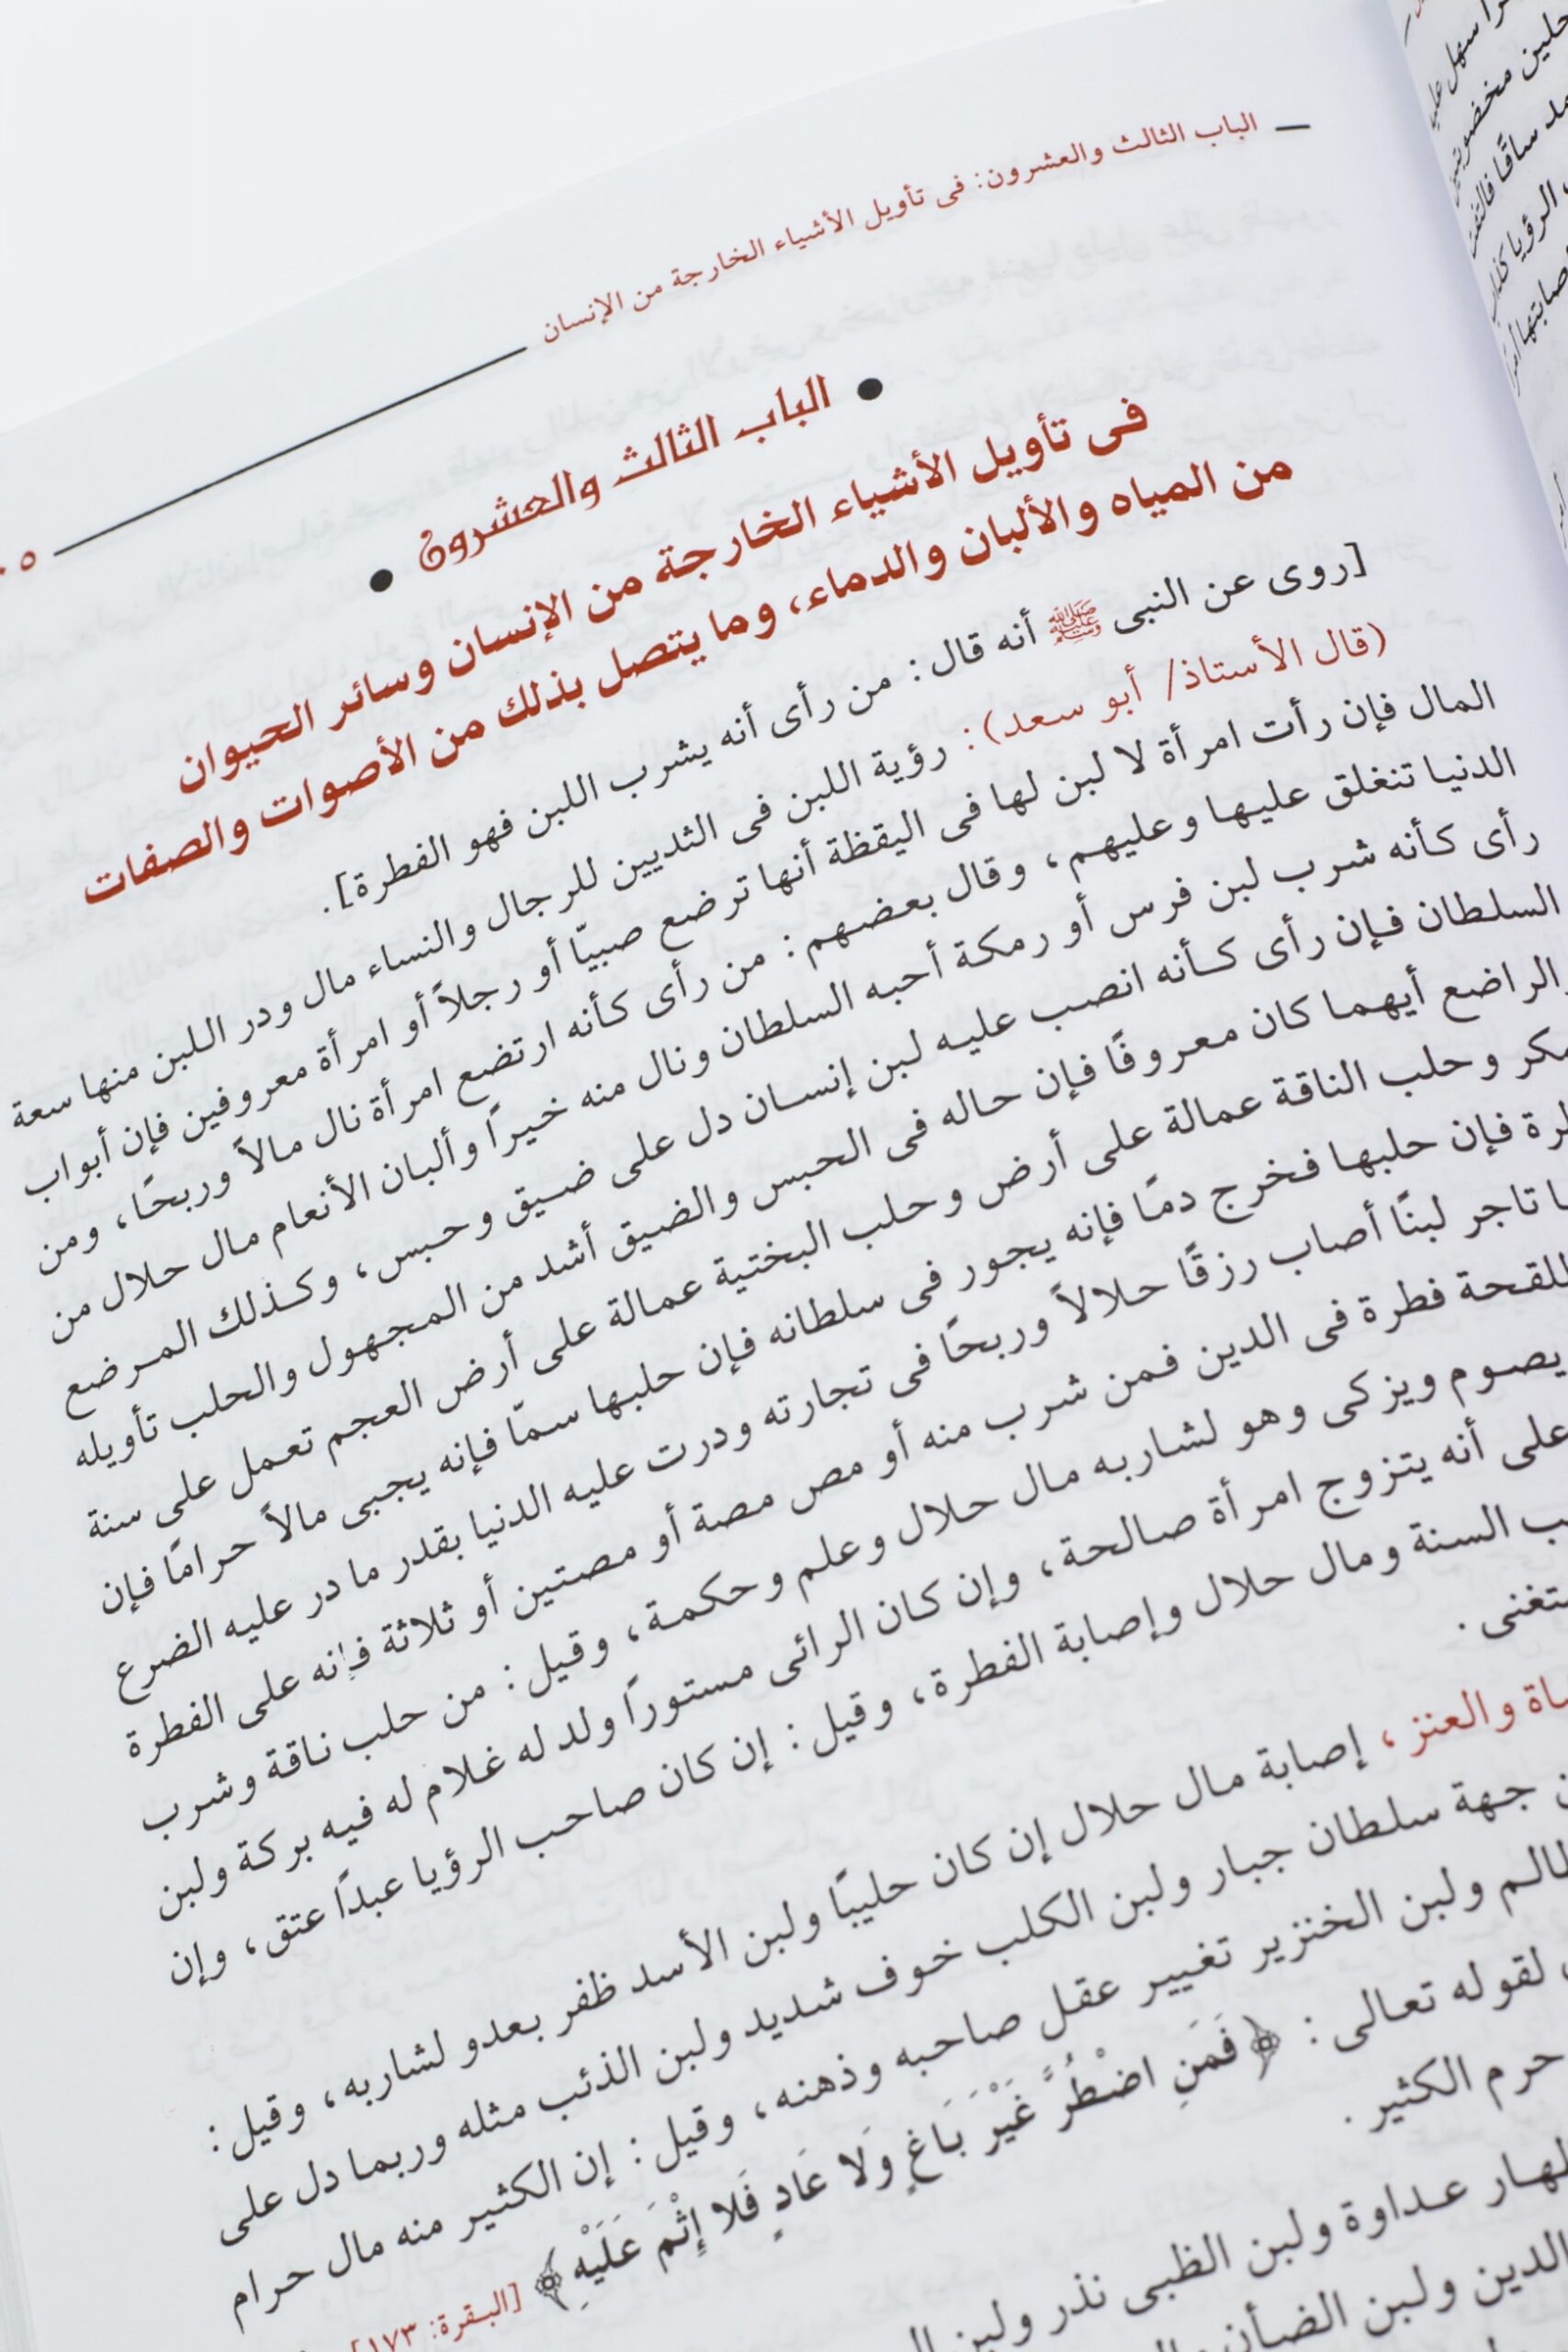 الباب الثالث والعشرون: فى تأويل الأشياء الخارجة من الإنسان
الباب الثالث والعشرون
فى تأويل الأشياء الخارجة من الإنسان وسائر الحيوان
من المياه والألبان والدماء، وما يتصل بذلك من الأصوات والصفات
[روى عن النبى ﷺ أنه قال: من رأى أنه يشرب اللبن فهو الفطرة].
(قال الأستاذ/ أبو سعد): رؤية اللبن فى الثديين للرجال والنساء مال ودر اللبن منها سعة
المال فإن رأت امرأة لا لبن لها فى اليقظة أنها ترضع صبيّا أو رجلاً أو امرأة معروفين فإن أبواب
الدنيا تنغلق عليها وعليهم، وقال بعضهم: من رأى كأنه ارتضع امرأة نال مالاً وربحًا، ومن
رأى كأنه شرب لبن فرس أو رمكة أحبه السلطان ونال منه خيراً وألبان الأنعام مال حلال من
السلطان فإن رأى كأنه انصب عليه لبن إنسان دل على ضيق وحبس، وكذلك المرضع
والراضع أيهما كان معروفًا فإن حاله فى الحبس والضيق أشد من المجهول والحلب تأويله
مكر وحلب الناقة عمالة على أرض وحلب البختية عمالة على أرض العجم تعمل على سنة
فإن حلبها فخرج دمًا فإنه يجور فى سلطانه فإن حلبها سمّا فإنه يجبى مالاً حرامًا فإن
تاجر لبنًا أصاب رزقًا حلالاً وربحًا فى تجارته ودرت عليه الدنيا بقدر ما در عليه الضرع
للقحة فطرة فى الدين فمن شرب منه أو مص مصة أو مصتين أو ثلاثة فإنه على الفطرة
يصوم ويزكى وهو لشاربه مال حلال وعلم وحكمة، وقيل: من حلب ناقة وشرب
على أنه يتزوج امرأة صالحة، وإن كان الرائى مستوراً ولد له غلام له فيه بركة ولبن
السنة ومال حلال وإصابة الفطرة، وقيل: إن كان صاحب الرؤيا عبداً عتق، وإن
والعنز، إصابة مال حلال إن كان حليبًا ولبن الأسد ظفر بعدو لشاربه، وقيل:
جهة سلطان جبار ولبن الكلب خوف شديد ولبن الذئب مثله وربما دل على
ولبن الخنزير تغيير عقل صاحبه وذهنه، وقيل: إن الكثير منه مال حرام
لقوله تعالى: ﴿فَمَنِ اضْطُرَّ غَيْرَ بَاغٍ وَلَا عَادٍ فَلَا إِثْمَ عَلَيْهِ﴾ [البقرة: ١٧٣]
حرم الكثير.
عداوة ولبن الظبى نذر ولبن
الدين ولبن الضأن